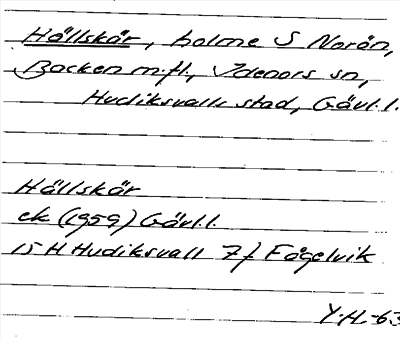 Hällskär, holme S Norön,
Backen m.fl., Idenors sn,
Hudiksvalls stad, Gävl.l.
Hällskär
ek (1959) Gävl.l.
15 H Hudiksvall 7f Fågelvik
Y.H.-63